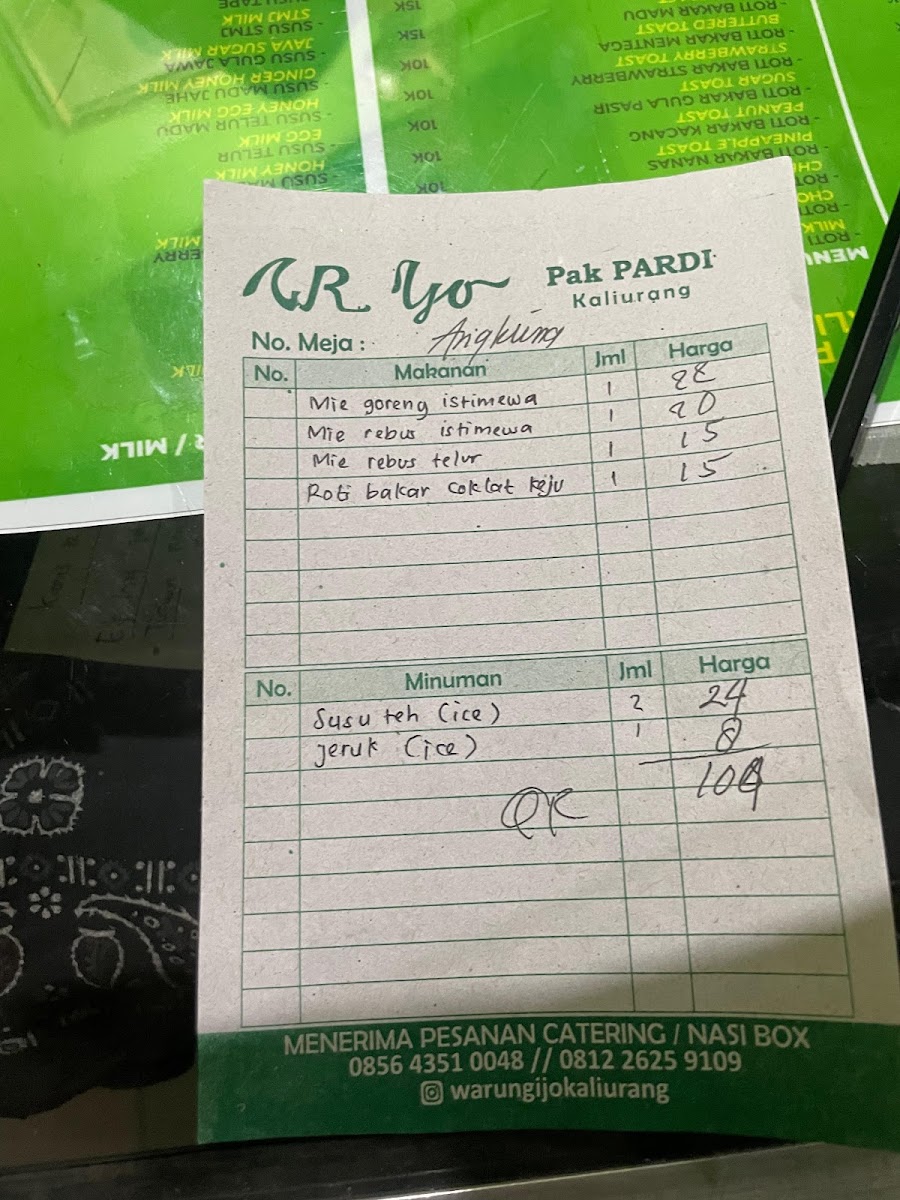 WR Ijo
Pak PARDI
Kaliurang
No. Meja : Angkring
No. Makanan Jml Harga
Mie goreng istimewa 1 22
Mie rebus istimewa 1 20
Mie rebus telur 1 15
Roti bakar coklat keju 1 15
No. Minuman Jml Harga
Susu teh (ice) 2 24
jeruk (ice) 1 8
104
QR
MENERIMA PESANAN CATERING / NASI BOX
0856 4351 0048 // 0812 2625 9109
warungijokaliurang
- ROTI BAKAR NANAS 10K
PINEAPPLE TOAST
- ROTI BAKAR KACANG 10K
PEANUT TOAST
- ROTI BAKAR GULA PASIR 10K
SUGAR TOAST
- ROTI BAKAR STRAWBERRY 10K
STRAWBERRY TOAST
- ROTI BAKAR MENTEGA 15K
BUTTERED TOAST
- ROTI BAKAR MADU 15K
/ MILK
HONEY MILK
- SUSU TELUR
EGG MILK
- SUSU TELUR MADU
HONEY EGG MILK
- SUSU MADU JAHE
GINGER HONEY MILK
- SUSU GULA JAWA
JAVA SUGAR MILK
- SUSU STMJ
STMJ MILK